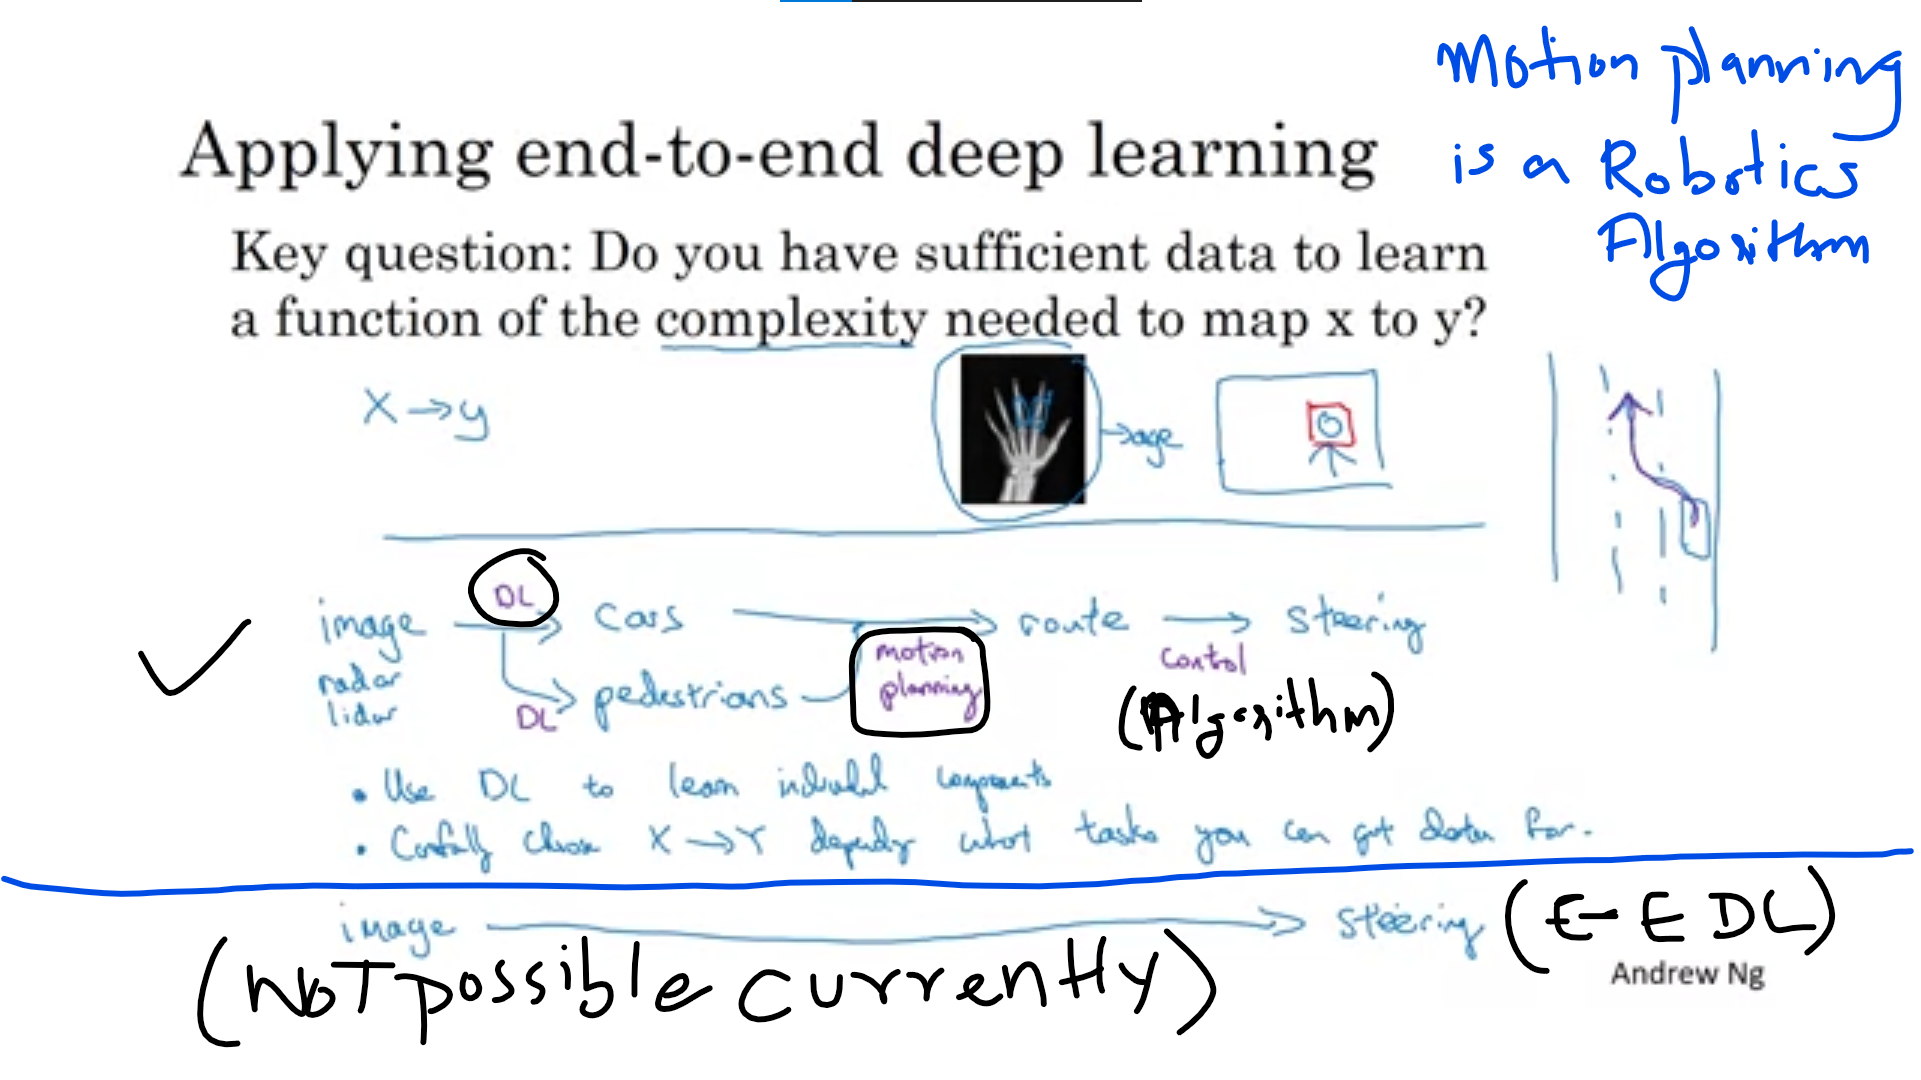 Motion planning
is a Robotics
Algorithm
Applying end-to-end deep learning
Key question: Do you have sufficient data to learn
a function of the complexity needed to map x to y?
X → y
→ age
image DL → cars → route → steering
radar
lidar
DL → pedestrians
motion
planning
control
(Algorithm)
• Use DL to learn individual components
• Carefully choose X → Y depending what tasks you can get data for.
image → steering (E-E DL)
(NOT possible currently)
Andrew Ng